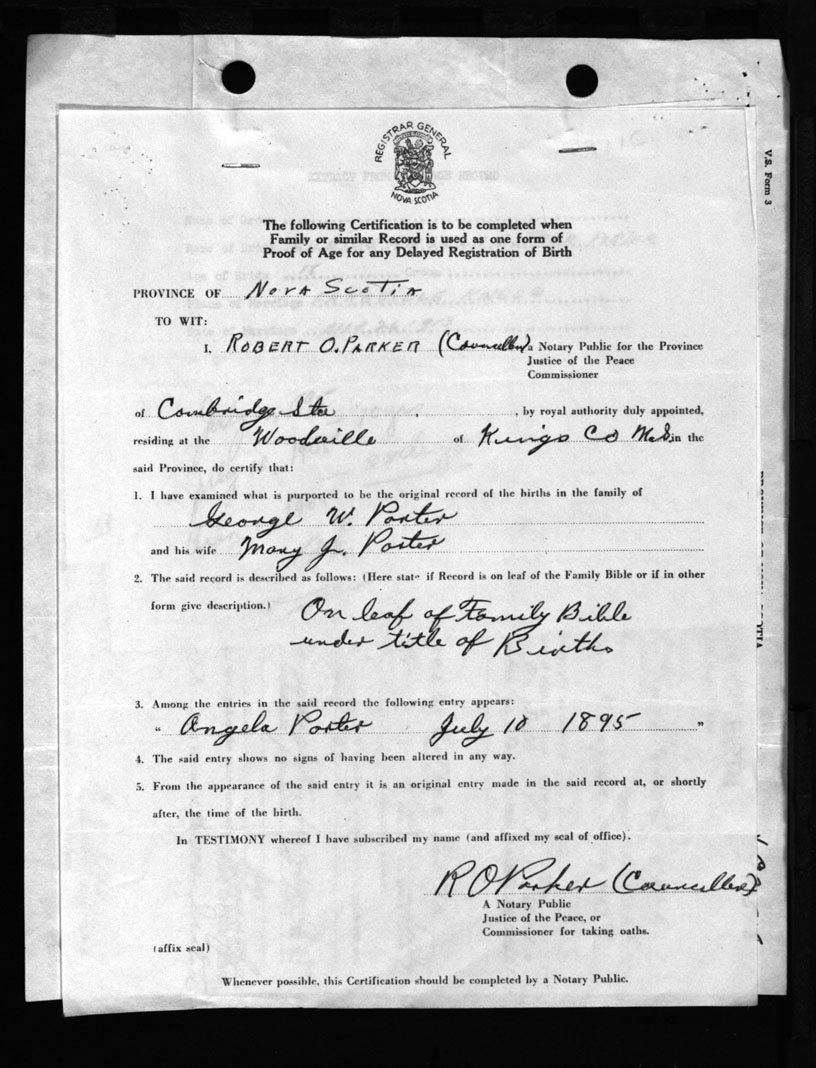 V.S. Form 3
REGISTRAR GENERAL
NOVA SCOTIA
The following Certification is to be completed when
Family or similar Record is used as one form of
Proof of Age for any Delayed Registration of Birth
PROVINCE OF NOVA SCOTIA
TO WIT:
I, ROBERT O. PARKER (Councillor) a Notary Public for the Province
Justice of the Peace
Commissioner
of Cambridge Sta , by royal authority duly appointed,
residing at the Woodville of Kings Co N.S. in the
said Province, do certify that:
1. I have examined what is purported to be the original record of the births in the family of
George W. Porter
and his wife Mary J. Porter
2. The said record is described as follows: (Here state if Record is on leaf of the Family Bible or if in other
form give description.) On leaf of Family Bible
under title of Births
3. Among the entries in the said record the following entry appears:
" Angela Porter July 10 1895 "
4. The said entry shows no signs of having been altered in any way.
5. From the appearance of the said entry it is an original entry made in the said record at, or shortly
after, the time of the birth.
In TESTIMONY whereof I have subscribed my name (and affixed my seal of office).
R O Parker (Councillor)
A Notary Public
Justice of the Peace, or
Commissioner for taking oaths.
(affix seal)
Whenever possible, this Certification should be completed by a Notary Public.